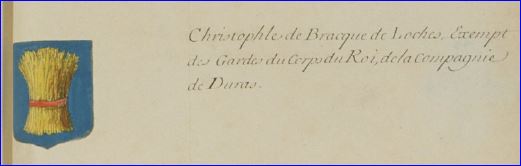 Christophle de Bracque de Loches, Exempt
des Gardes du Corps du Roi, de la Compagnie
de Duras.